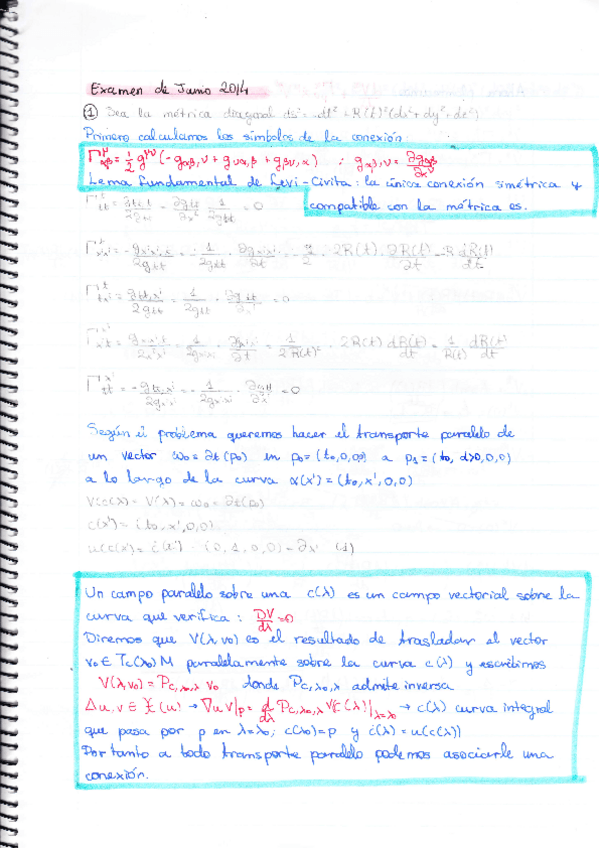 Examen de Junio 2014
① Sea la métrica diagonal ds² = -dt² + R(t)²(dx² + dy² + dz²)
Primero calculamos los símbolos de la conexión
Γ^μ_αβ = 1/2 g^μν (-g_αβ,ν + g_να,β + g_βν,α) ; g_αβ,ν = ∂g_αβ/∂x^ν
Lema Fundamental de Levi-Civita: la única conexión simétrica y
compatible con la métrica es.
Γ^t_tt = g_tt,t/2g_tt = ∂g_tt/∂t · 1/2g_tt = 0
Γ^t_x^i x^i = -g_x^i x^i,t/2g_tt = -1/2g_tt · ∂g_x^i x^i/∂t = 1/2 · 2R(t) · ∂R(t)/∂t = R dR(t)/dt
Γ^t_tx^i = g_tt,x^i/2g_tt = 1/2g_tt · ∂g_tt/∂x^i = 0
Γ^x^i_x^i t = g_x^i x^i,t/2g_x^i x^i = 1/2g_x^i x^i · ∂g_x^i x^i/∂t = 1/2R(t)² · 2R(t) dR(t)/dt = 1/R(t) dR(t)/dt
Γ^x^i_tt = -g_tt,x^i/2g_x^i x^i = -1/2g_x^i x^i · ∂g_tt/∂x^i = 0
Según el problema queremos hacer el transporte paralelo de
un vector ω₀ = ∂t(p₀) en p₀=(t₀,0,0,0) a p₁=(t₀, d>0,0,0)
a lo largo de la curva α(x') = (t₀,x',0,0)
V(c(λ)) = V(λ) = ω₀ = ∂t(p₀)
c(x') = (t₀, x',0,0)
u(c(x')) = ċ(x') = (0,1,0,0) = ∂x' (1)
Un campo paralelo sobre una c(λ) es un campo vectorial sobre la
curva que verifica: DV/dλ = 0
Diremos que V(λ,v₀) es el resultado de trasladar el vector
v₀ ∈ T_c(λ₀) M paralelamente sobre la curva c(λ) y escribimos
V(λ,v₀) = P_c,λ₀,λ v₀ donde P_c,λ₀,λ admite inversa
que pasa por p en λ=λ₀; c(λ₀)=p y ċ(λ) = u(c(λ))
Por tanto a todo transporte paralelo podemos asociarle una
conexión.